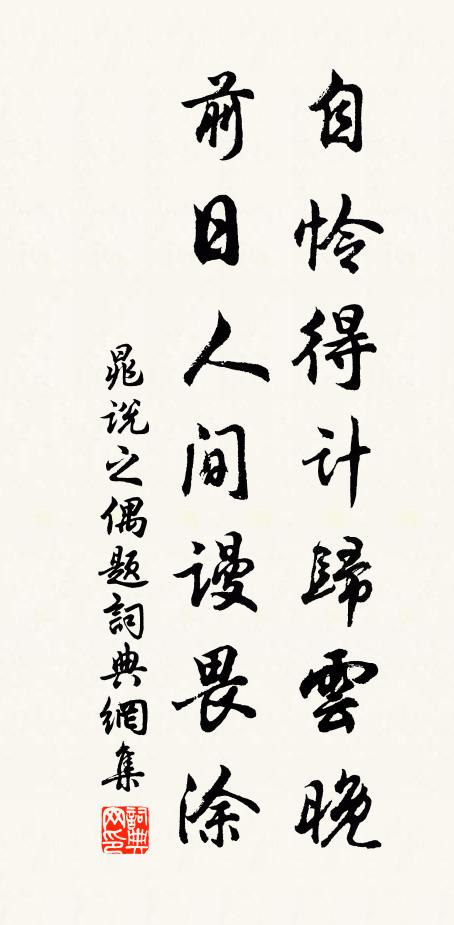 自怜得计歸雲晚
前日人间謾畏涂
晁说之偶题詞典網集
詞典网印